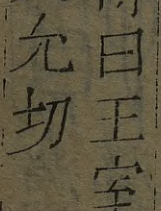 曰王室
允切